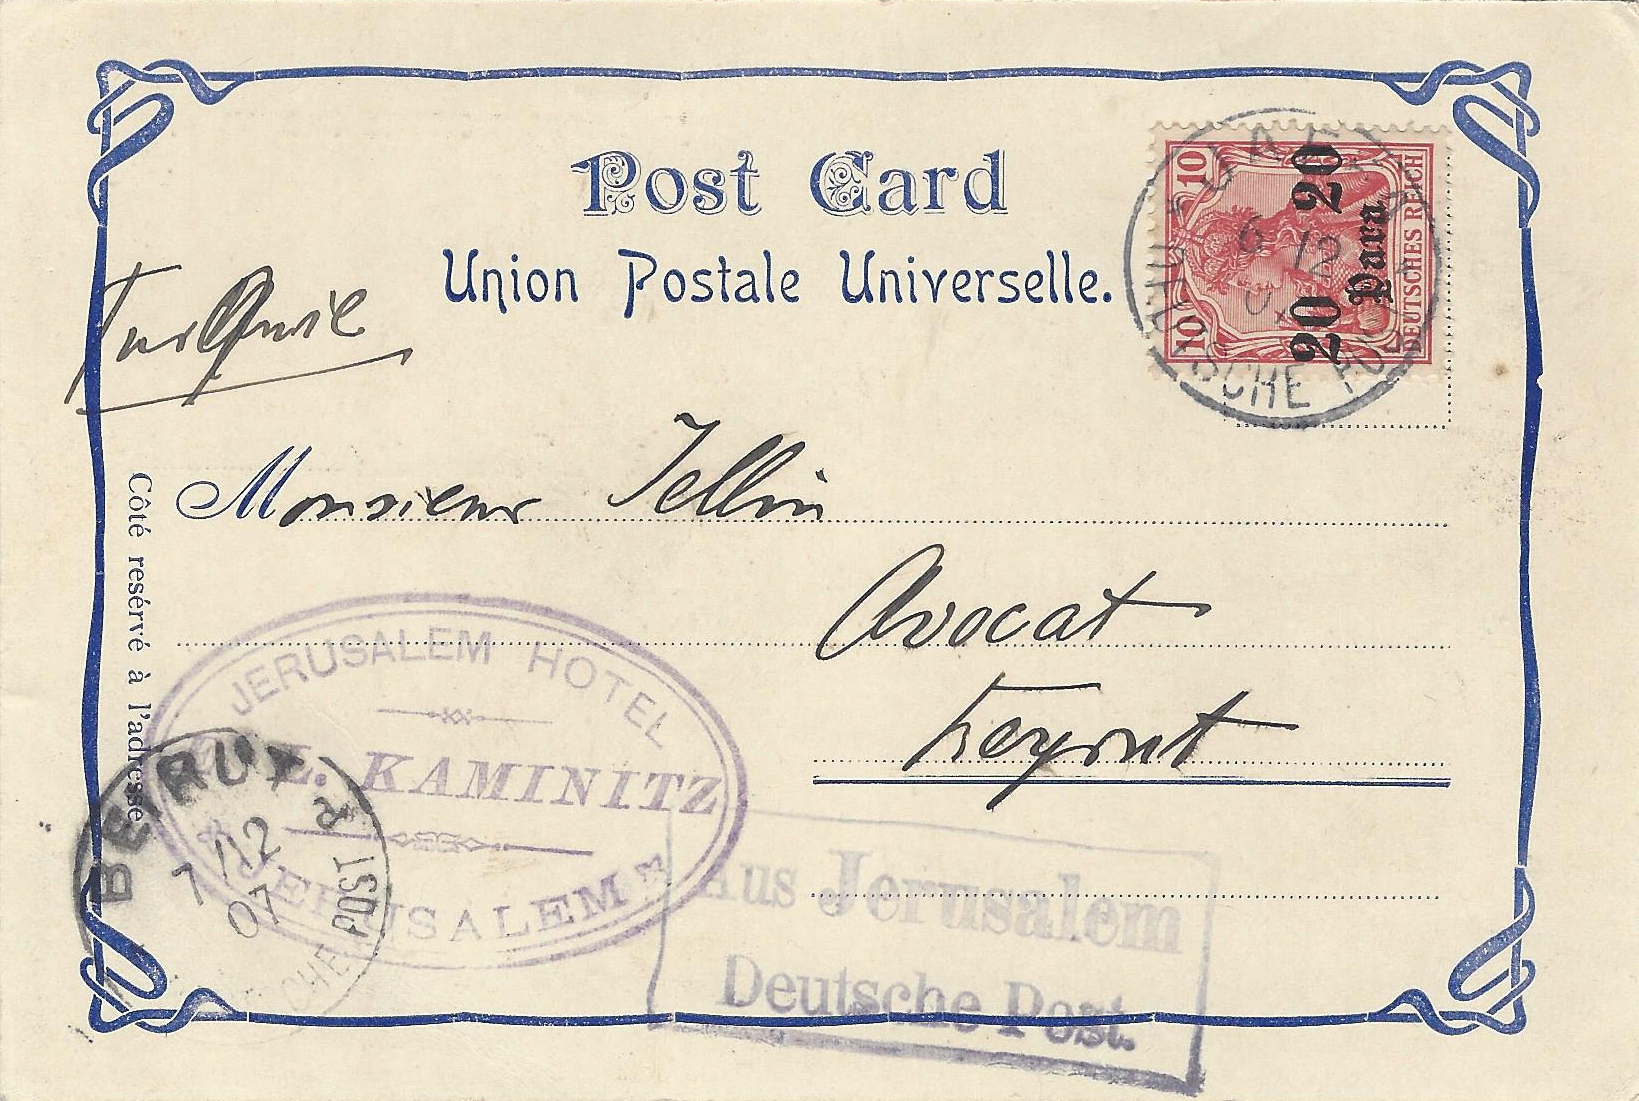 Post Card
Union Postale Universelle.
10 10
20 20
Para
DEUTSCHES REICH
JAFFA
6 12
DEUTSCHE POST
Monsieur Jellin
Avocat
Beyrut
Côté resérvé à l'adresse
JERUSALEM HOTEL
L. KAMINITZ
JERUSALEM
BEIRUT
7/12
07
DEUTSCHE POST
Aus Jerusalem
Deutsche Post.